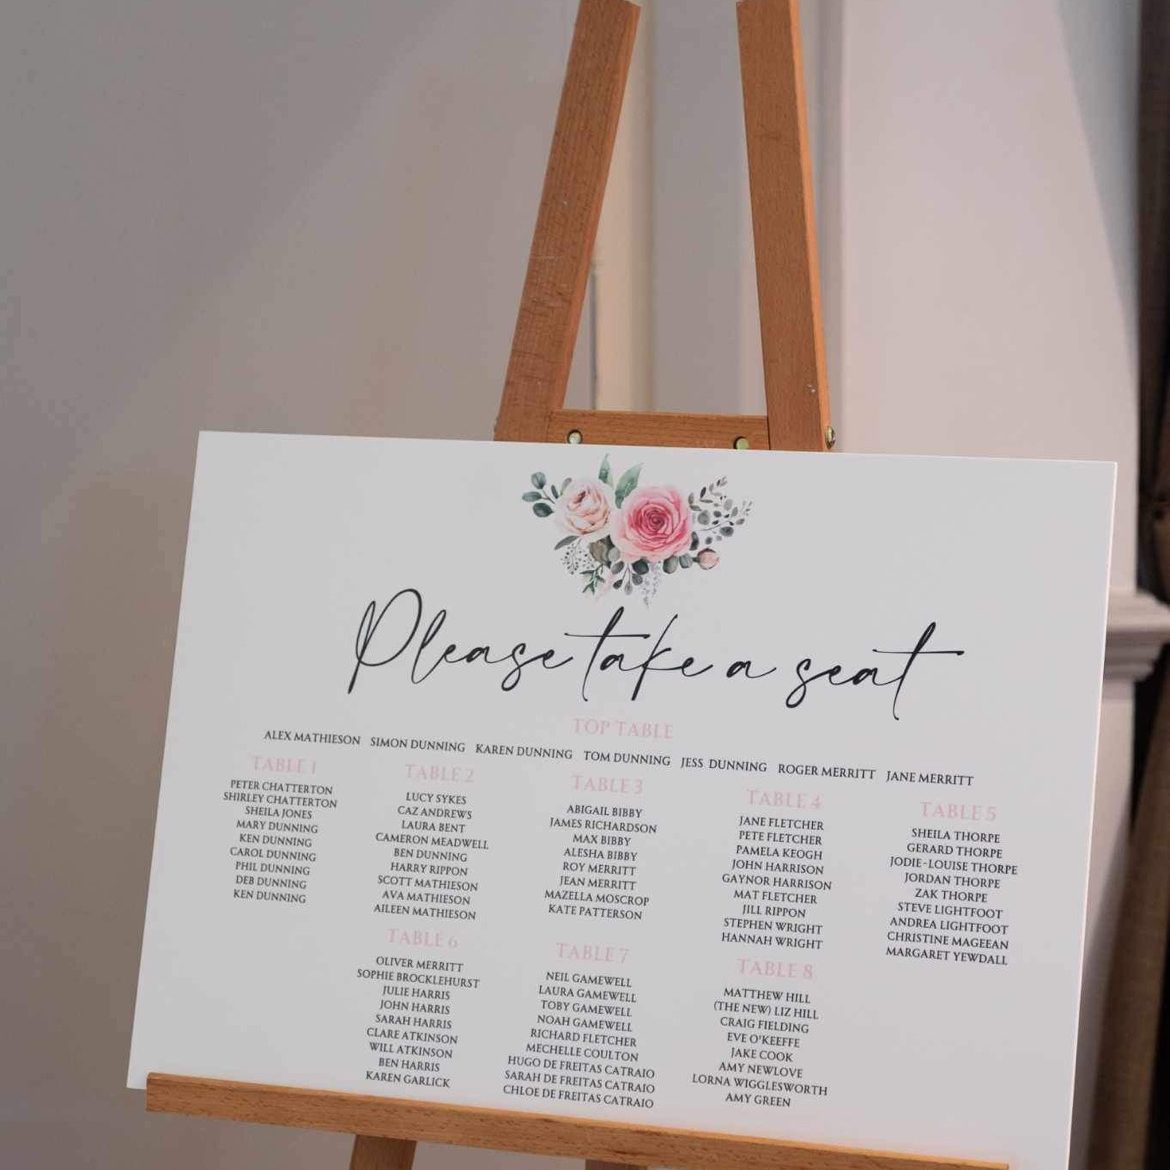 Please take a seat
TOP TABLE
ALEX MATHIESON SIMON DUNNING KAREN DUNNING TOM DUNNING JESS DUNNING ROGER MERRITT JANE MERRITT
TABLE 1
PETER CHATTERTON
SHIRLEY CHATTERTON
SHEILA JONES
MARY DUNNING
KEN DUNNING
CAROL DUNNING
PHIL DUNNING
DEB DUNNING
KEN DUNNING
TABLE 2
LUCY SYKES
CAZ ANDREWS
LAURA BENT
CAMERON MEADWELL
BEN DUNNING
HARRY RIPPON
SCOTT MATHIESON
AVA MATHIESON
AILEEN MATHIESON
TABLE 3
ABIGAIL BIBBY
JAMES RICHARDSON
MAX BIBBY
ALESHA BIBBY
ROY MERRITT
JEAN MERRITT
MAZELLA MOSCROP
KATE PATTERSON
TABLE 4
JANE FLETCHER
PETE FLETCHER
PAMELA KEOGH
JOHN HARRISON
GAYNOR HARRISON
MAT FLETCHER
JILL RIPPON
STEPHEN WRIGHT
HANNAH WRIGHT
TABLE 5
SHEILA THORPE
GERARD THORPE
JODIE-LOUISE THORPE
JORDAN THORPE
ZAK THORPE
STEVE LIGHTFOOT
ANDREA LIGHTFOOT
CHRISTINE MAGEEAN
MARGARET YEWDALL
TABLE 6
OLIVER MERRITT
SOPHIE BROCKLEHURST
JULIE HARRIS
JOHN HARRIS
SARAH HARRIS
CLARE ATKINSON
WILL ATKINSON
BEN HARRIS
KAREN GARLICK
TABLE 7
NEIL GAMEWELL
LAURA GAMEWELL
TOBY GAMEWELL
NOAH GAMEWELL
RICHARD FLETCHER
MECHELLE COULTON
HUGO DE FREITAS CATRAIO
SARAH DE FREITAS CATRAIO
CHLOE DE FREITAS CATRAIO
TABLE 8
MATTHEW HILL
(THE NEW) LIZ HILL
CRAIG FIELDING
EVE O'KEEFFE
JAKE COOK
AMY NEWLOVE
LORNA WIGGLESWORTH
AMY GREEN